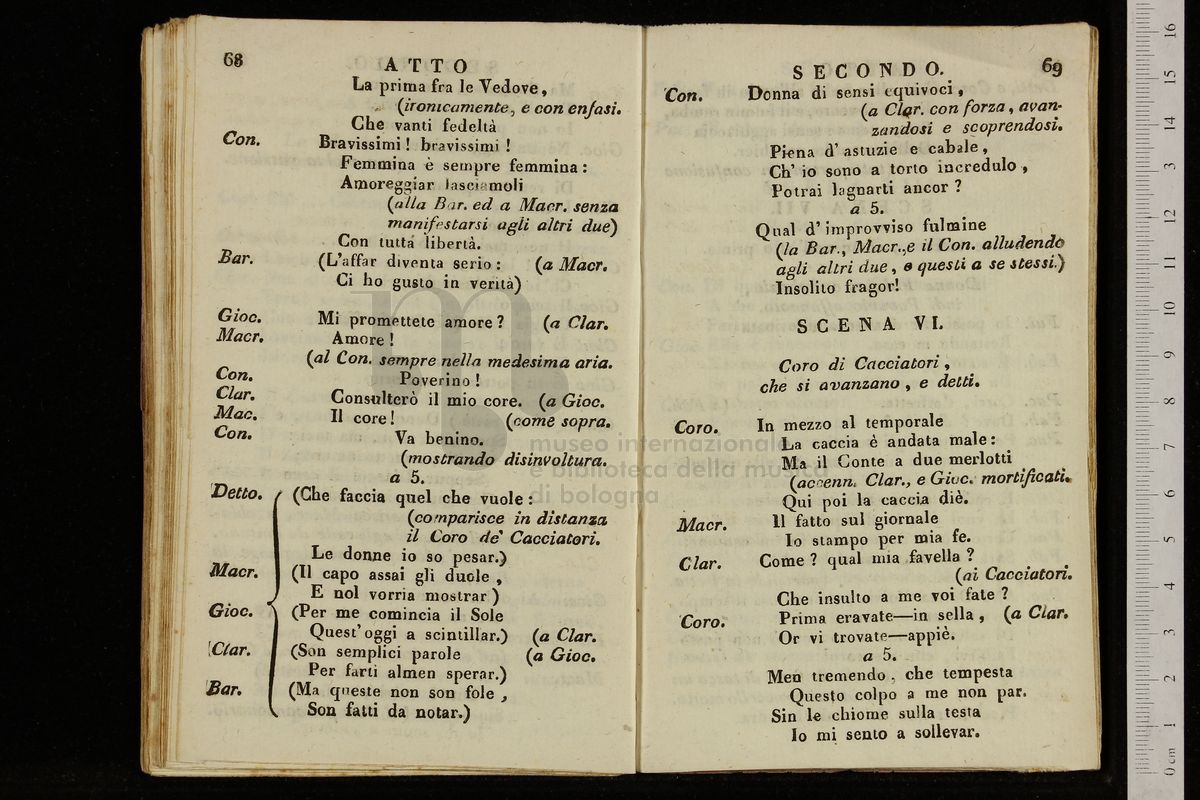 68
ATTO
La prima fra le Vedove,
(ironicamente, e con enfasi.
Che vanti fedeltà
Con. Bravissimi! bravissimi!
Femmina è sempre femmina:
Amoreggiar lasciamoli
(alla Bar. ed a Macr. senza
manifestarsi agli altri due)
Con tutta libertà.
Bar. (L'affar diventa serio: (a Macr.
Ci ho gusto in verità)
Gioc. Mi promettete amore? (a Clar.
Macr. Amore!
(al Con. sempre nella medesima aria.
Con. Poverino!
Clar. Consulterò il mio core. (a Gioc.
Mac. Il core! (come sopra.
Con. Va benino.
(mostrando disinvoltura.
a 5.
Detto. (Che faccia quel che vuole:
(comparisce in distanza
il Coro de' Cacciatori.
Le donne io so pesar.)
Macr. (Il capo assai gli duole,
E nol vorria mostrar)
Gioc. (Per me comincia il Sole
Quest' oggi a scintillar.) (a Clar.
Clar. (Son semplici parole (a Gioc.
Per farti almen sperar.)
Bar. (Ma queste non son fole,
Son fatti da notar.)
SECONDO. 69
Con. Donna di sensi equivoci,
(a Clar. con forza, avan-
zandosi e scoprendosi.
Piena d' astuzie e cabale,
Ch' io sono a torto incredulo,
Potrai lagnarti ancor?
a 5.
Qual d' improvviso fulmine
(la Bar., Macr., e il Con. alludendo
agli altri due, e questi a se stessi.)
Insolito fragor!
SCENA VI.
Coro di Cacciatori,
che si avanzano, e detti.
Coro. In mezzo al temporale
La caccia è andata male:
Ma il Conte a due merlotti
(accenn. Clar., e Gioc. mortificati.
Qui poi la caccia diè.
Macr. Il fatto sul giornale
Io stampo per mia fe.
Clar. Come? qual mia favella?
(ai Cacciatori.
Che insulto a me voi fate?
Coro. Prima eravate—in sella, (a Clar.
Or vi trovate—appiè.
a 5.
Men tremendo, che tempesta
Questo colpo a me non par.
Sin le chiome sulla testa
Io mi sento a sollevar.
museo internazionale
e biblioteca della musica
di bologna
0 cm 1 2 3 4 5 6 7 8 9 10 11 12 13 14 15 16